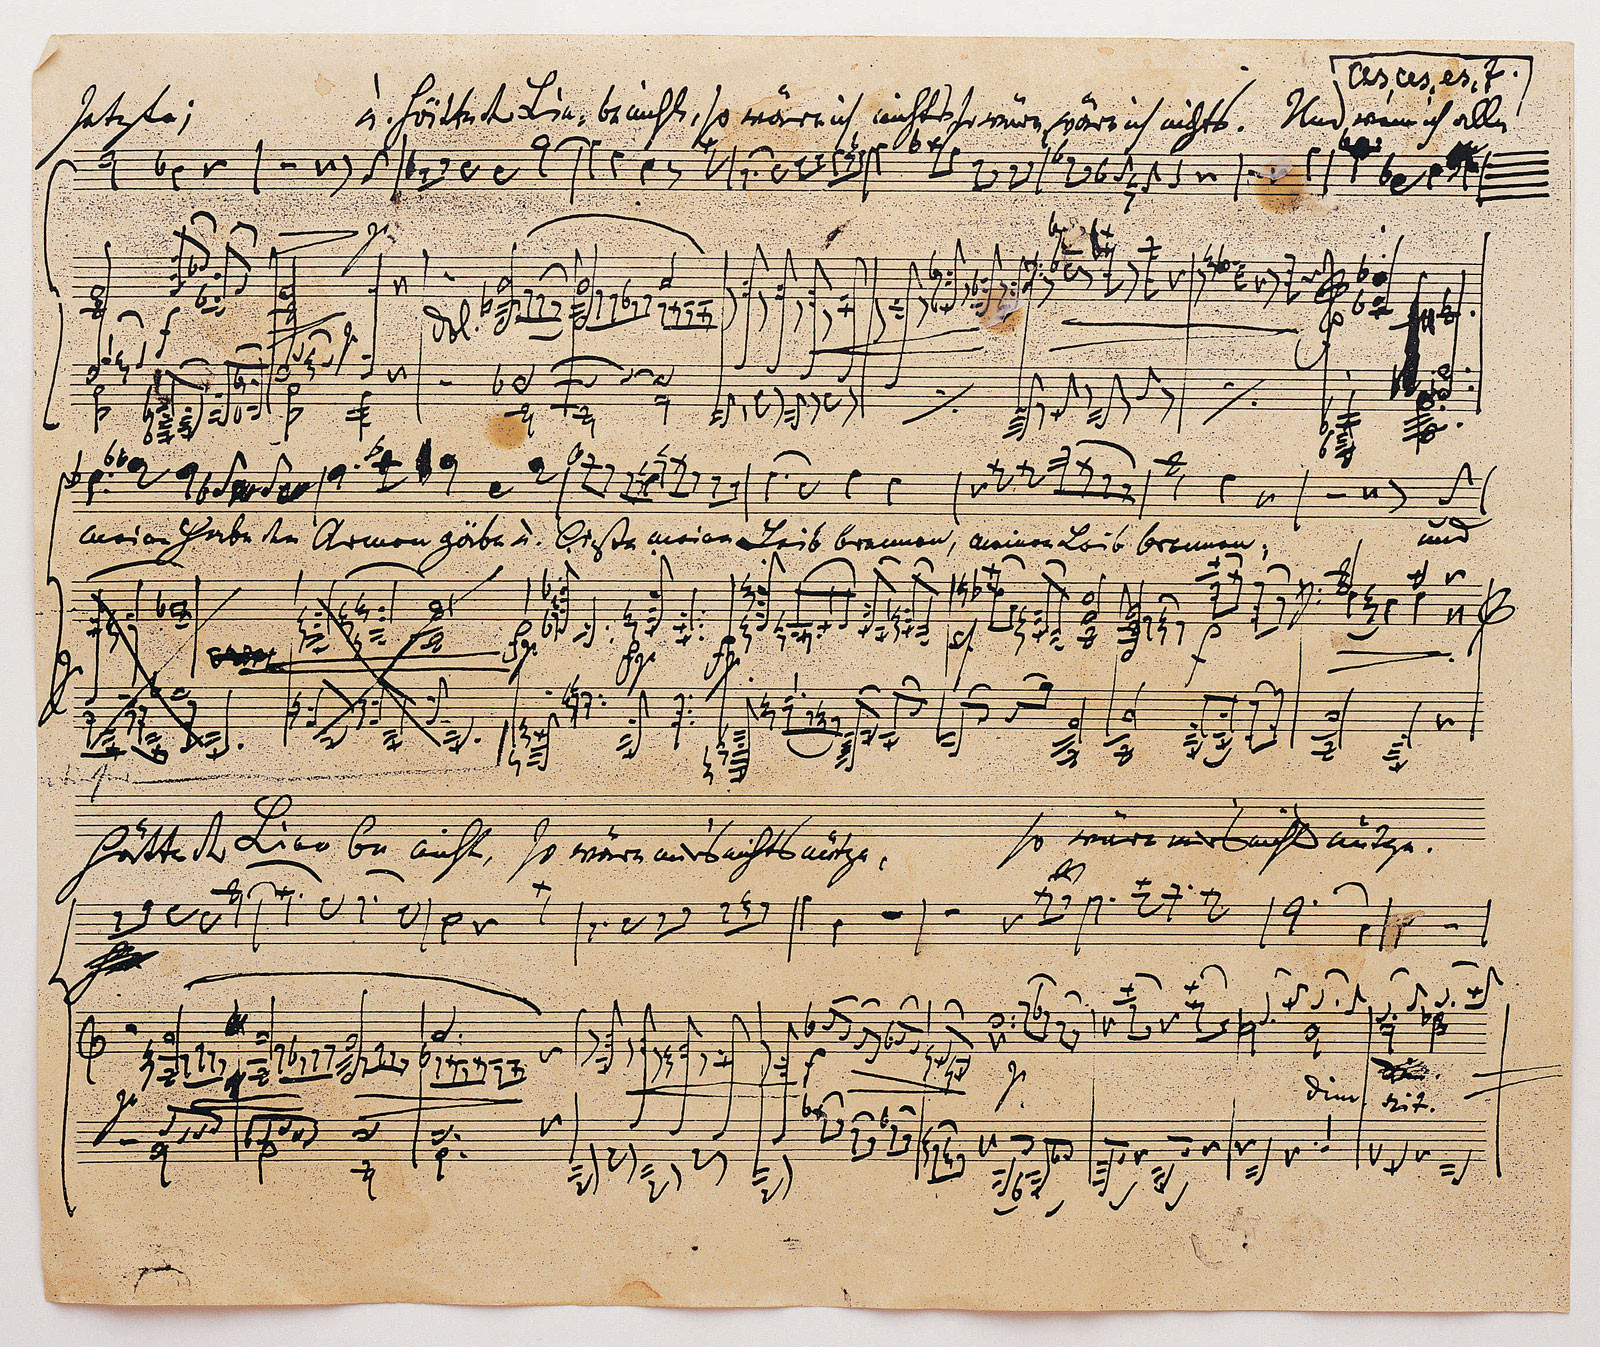 ces, ces, es, f.
setzte; u. hätte der Liebe nicht, so wäre ich nichts, so wäre, wäre ich nichts. Und wenn ich alle
dol.
meine Habe den Armen gäbe u. ließe meinen Leib brennen, meinen Leib brennen; und
fp. fp. fp. sf. f
hätte der Liebe nicht, so wäre mir's nichts nütze, so wäre mir's nichts nütze.
f p. dim. rit.